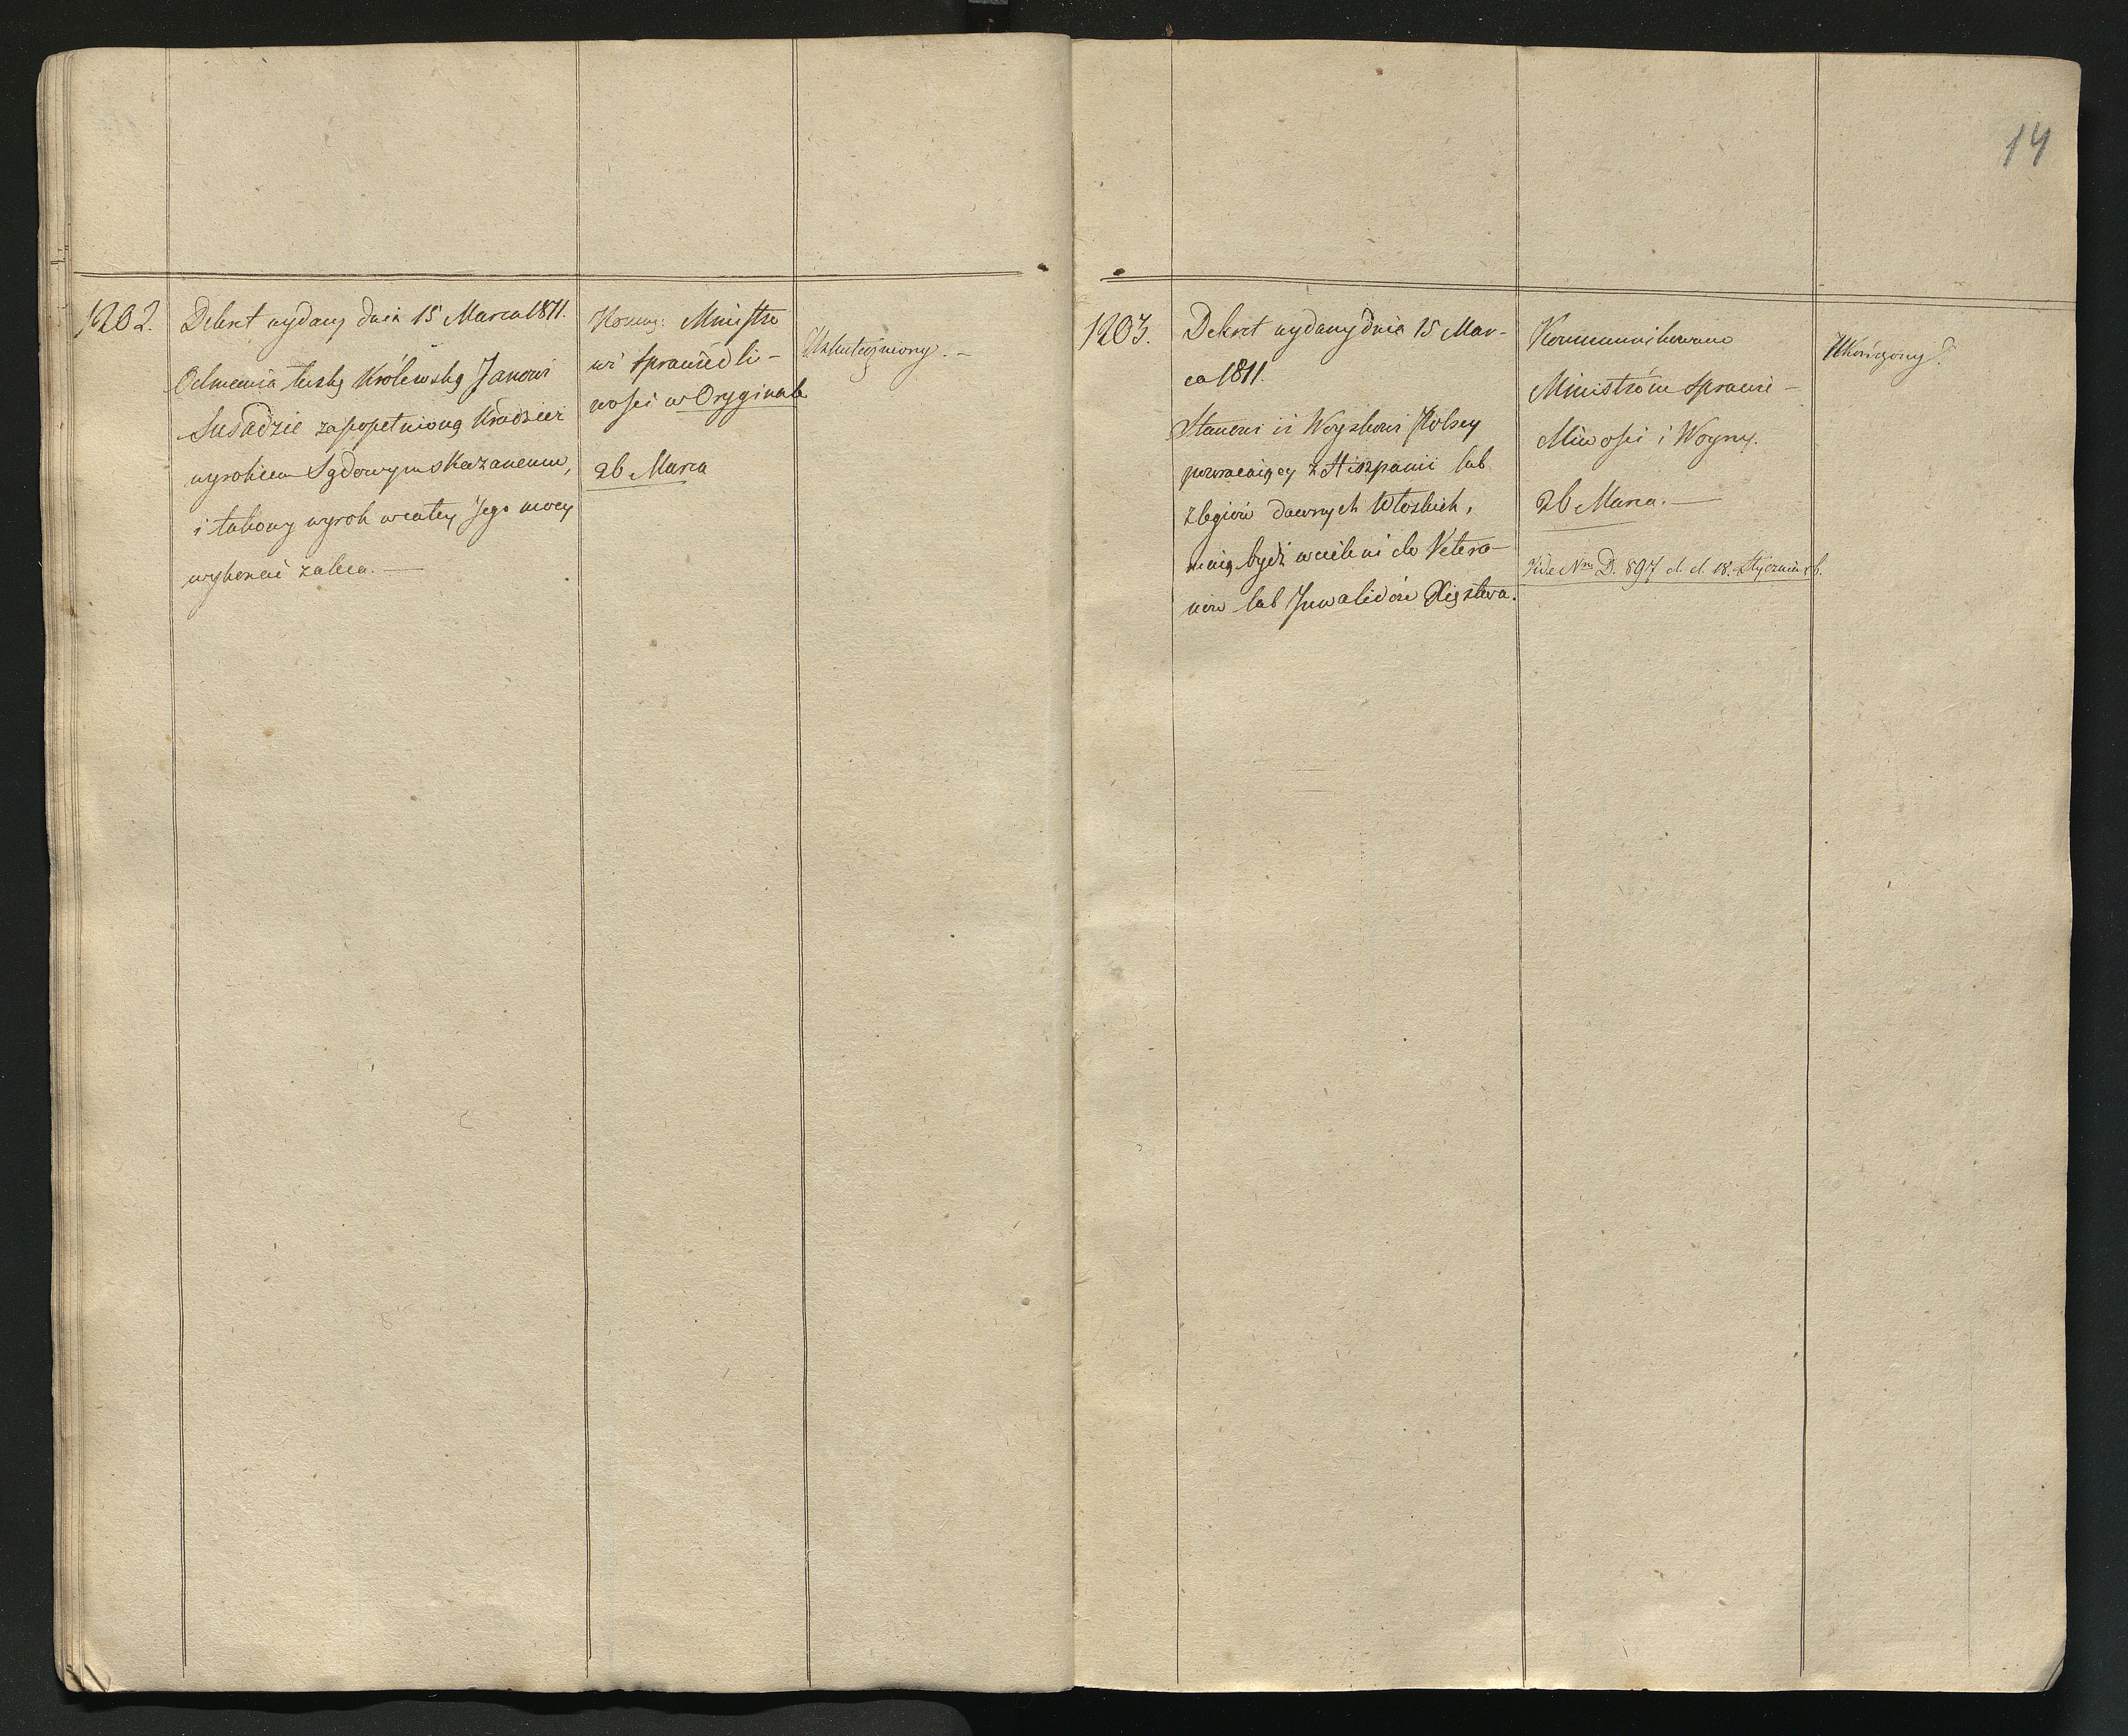 14
1202.
Dekret wydany dnia 15 Marca 1811.
Odmawia łaskę Królewską Janowi
zapopełnioną Kradzież
wyrokiem Sądowym skazanemu,
i takowy wyrok w całey Jego mocy
wykonać zaleca. —
Komm: Ministro
wi Sprawiedli-
wości w Oryginale
26 Marca
Uskuteczniony. —
1203.
Dekret wydany dnia 15 Mar-
ca 1811.
Stanowi iż Woyskowi Polscy
powracaiący z Hiszpanii lub
z legiow dawnych Włoskich,
maią bydź wcieleni do Vetera-
now lub Inwalidów Xięstwa.
Kommunikowano
Ministróm Sprawie-
dliwości i Woyny.
26 Marca. —
Vide Nro D. 897 d. d. 18. Stycznia r. b.
Ukończony